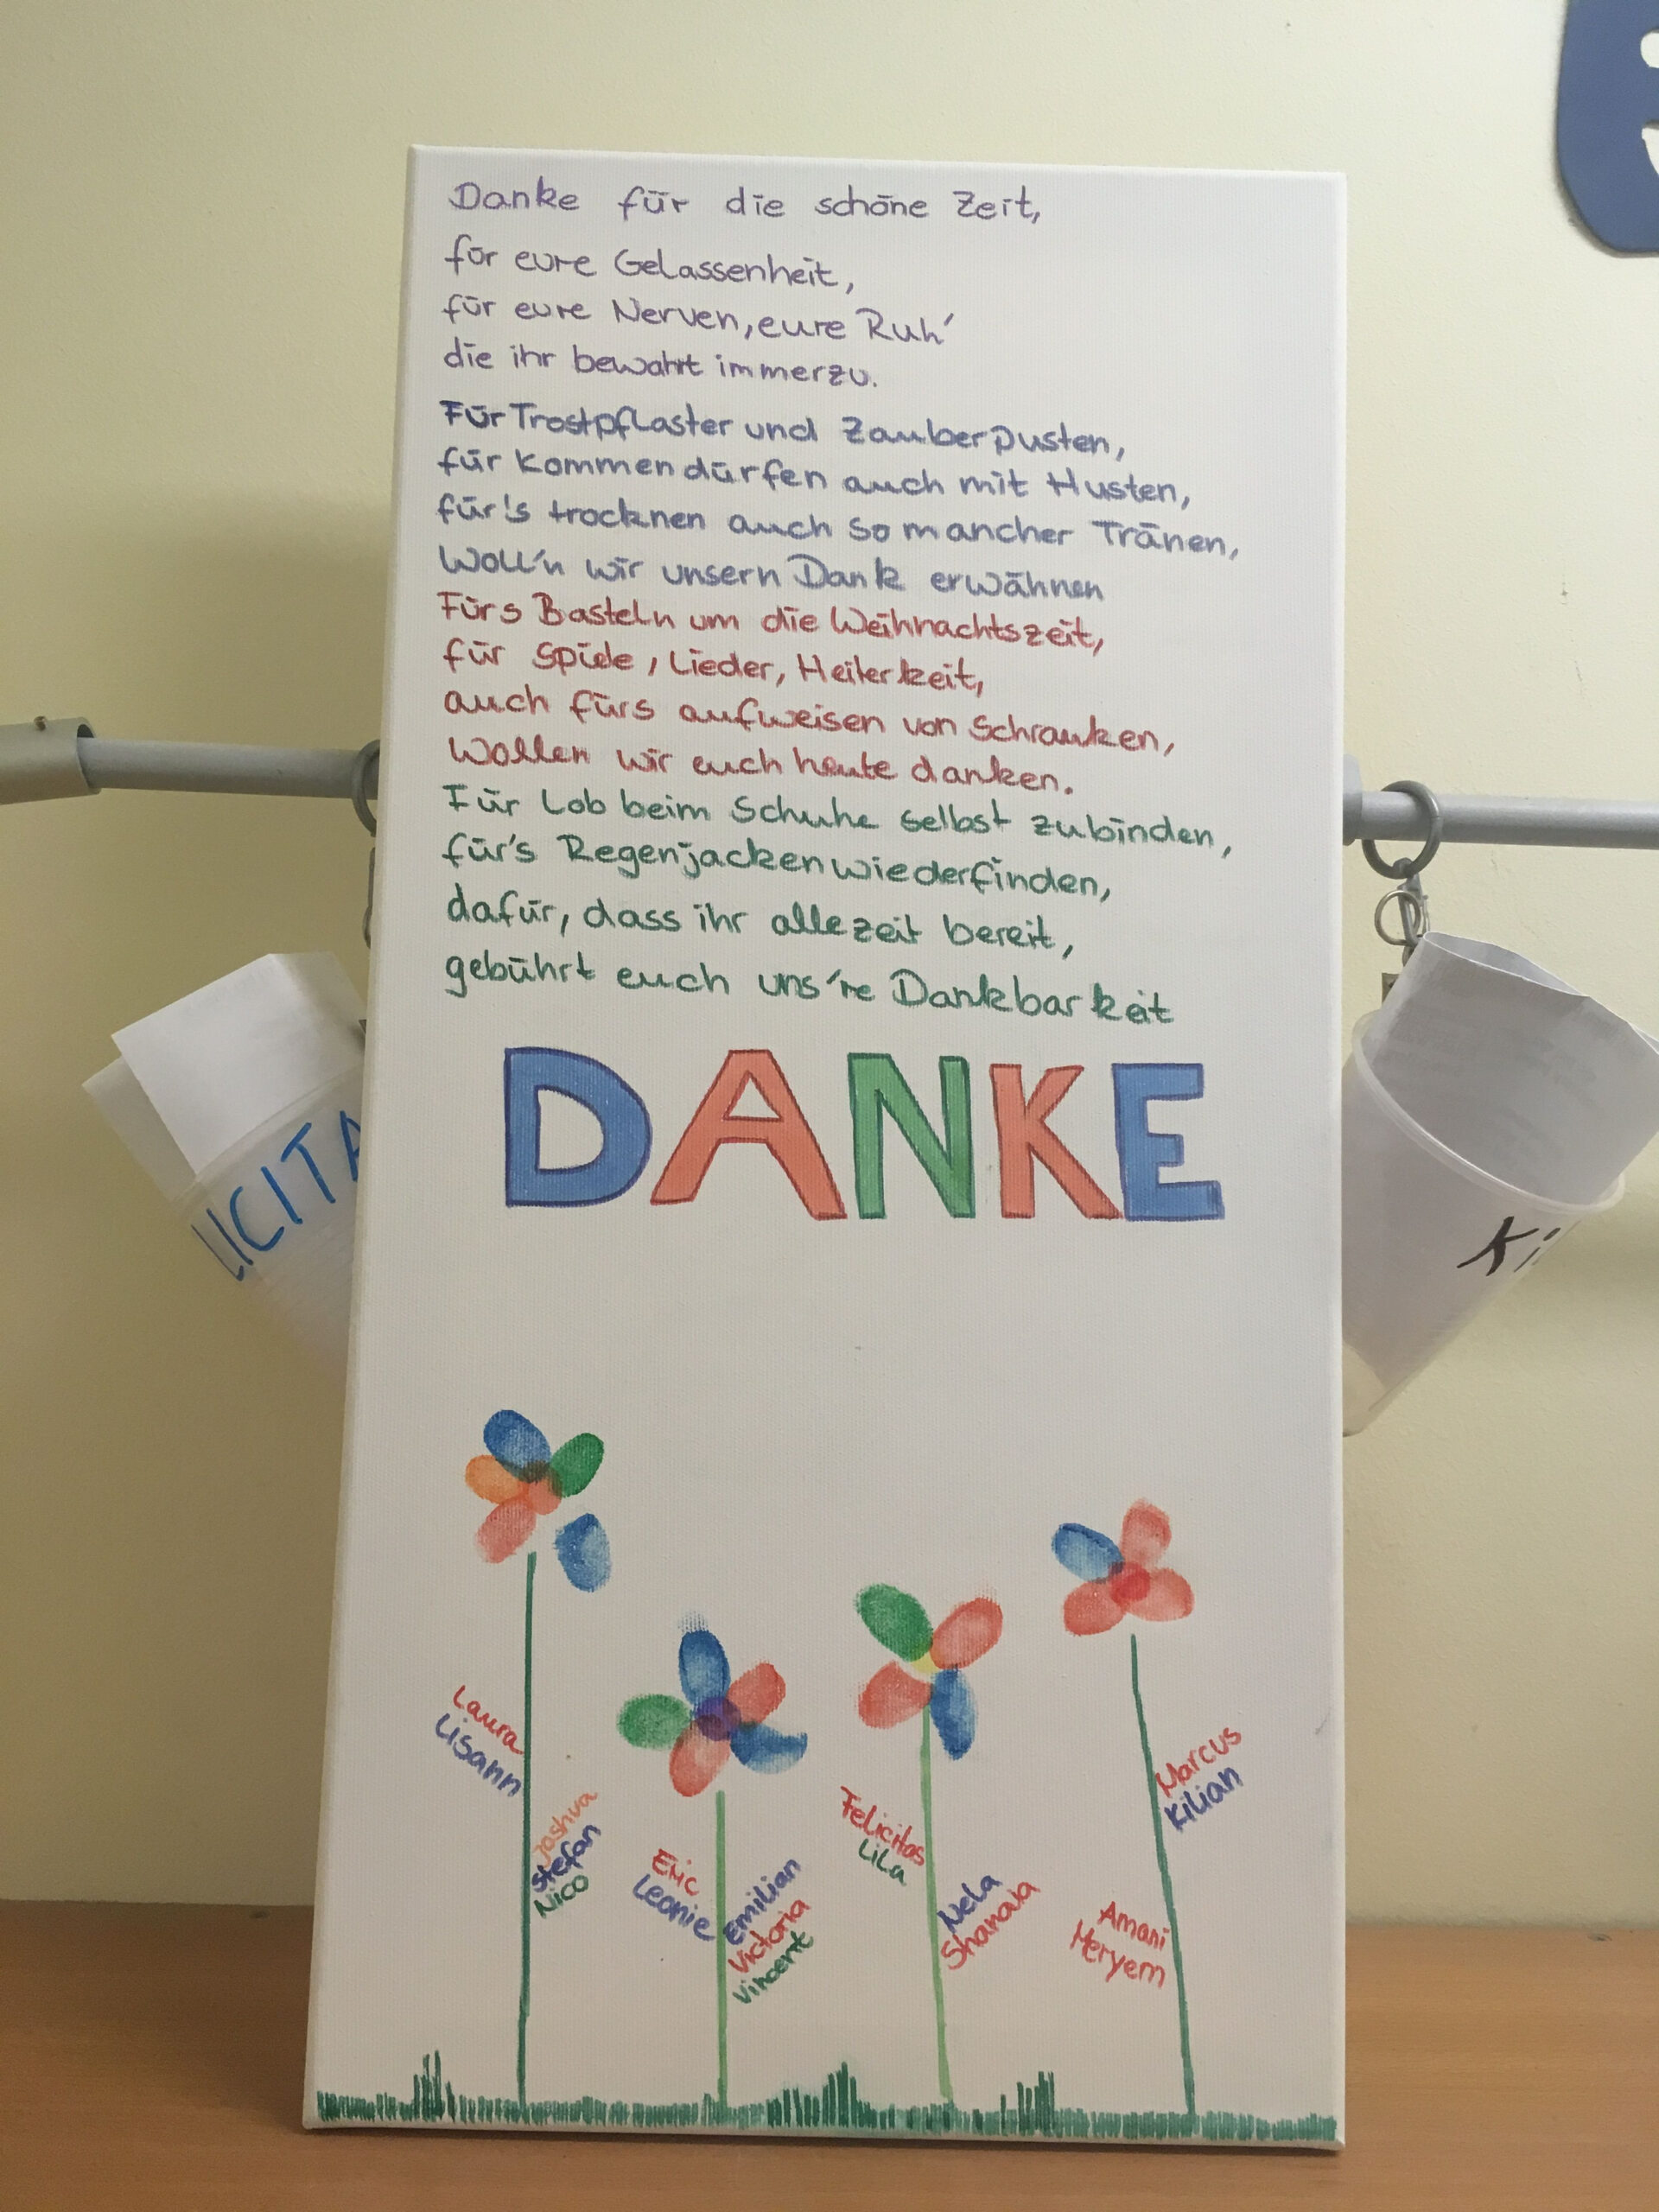 Danke für die schöne Zeit,
für eure Gelassenheit,
für eure Nerven, eure Ruh'
die ihr bewahrt immerzu.
Für Trostpflaster und Zauberpusten,
für kommen dürfen auch mit Husten,
für's trocknen auch so mancher Tränen,
Woll'n wir unsern Dank erwähnen
Fürs Basteln um die Weihnachtszeit,
für Spiele, Lieder, Heiterkeit,
auch fürs aufweisen von Schranken,
Wollen wir euch heute danken.
Für Lob beim Schuhe selbst zubinden,
für's Regenjacken wiederfinden,
dafür, dass ihr allezeit bereit,
gebührt euch uns're Dankbarkeit
DANKE
LICITA
Ki
Laura
Lisann
Joshua
Stefan
Nico
Eric
Leonie
Emilian
Victoria
Vincent
Felicitas
Lila
Nela
Shanaia
Marcus
Kilian
Amani
Meryem